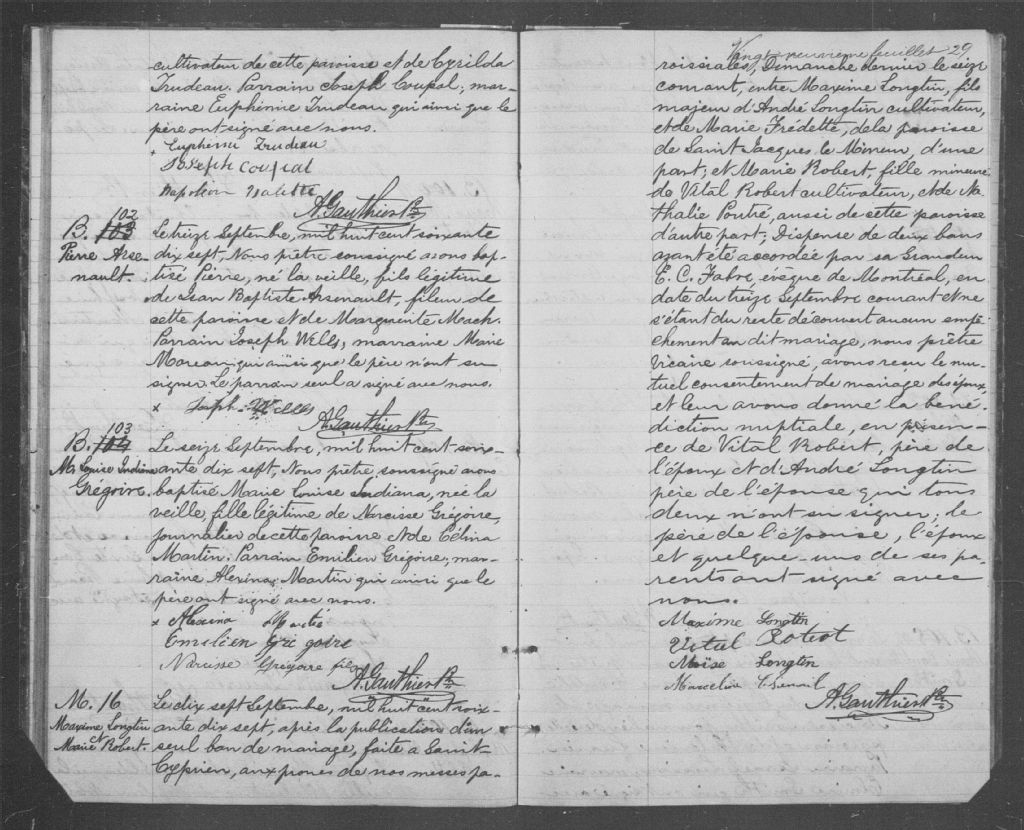 cultivateur de cette paroisse et de Cyrilda
Trudeau. Parrain Joseph Coupal, mar-
raine Euphémie Trudeau qui ainsi que le
père ont signé avec nous.
Euphemi Trudeau
Joseph Coupal
Napoléon
A. Gauthier Ptre
102
B. 103
Pierre Arse-
nault.
Le treize Septembre, mil huit cent soixante
dix sept, Nous prêtre soussigné avons bap-
tisé Pierre, né la veille, fils légitime
de Jean Baptiste Arsenault, fileur de
cette paroisse et de Marguerite Mack.
Parrain Joseph Wells, marraine Marie
Moreau qui ainsi que le père n'ont su
signer. Le parrain seul a signé avec nous.
x Joseph Wells
A. Gauthier Ptre
103
B. 104
M. Louise Indiana
Grégoire.
Le seize Septembre, mil huit cent soix-
ante dix sept, Nous prêtre soussigné avons
baptisé Marie Louise Indiana, née la
veille, fille légitime de Narcisse Grégoire,
journalier de cette paroisse et de Célina
Martin. Parrain Emilien Grégoire, mar-
raine Alexina Martin qui ainsi que le
père ont signé avec nous.
x Alexina
Emilien Grégoire
Narcisse Grégoire fils
A. Gauthier Ptre
M. 16
Maxime Longtin
et
Marie Robert.
Le dix sept Septembre, mil huit cent soix-
ante dix sept, après la publication d'un
seul ban de mariage, faite à Saint-
Cyprien, aux prônes de nos messes pa-
Vingt neuvième feuillet 29
roissiales, Dimanche dernier le seize
courant, entre Maxime Longtin, fils
majeur d'André Longtin cultivateur,
et de Marie Frédette, de la paroisse
de Saint Jacques le Mineur, d'une
part; et Marie Robert, fille mineure
de Vital Robert cultivateur, et de Na-
thalie Pontré, aussi de cette paroisse
d'autre part; Dispense de deux bans
ayant été accordée par sa Grandeur
E. C. Fabre, évêque de Montréal, en
date du treize Septembre courant et ne
s'étant du reste découvert aucun empê-
chement au dit mariage, nous prêtre
Vicaire soussigné, avons reçu le mu-
tuel consentement de mariage des époux
et leur avons donné la béné-
diction nuptiale, en présen-
ce de Vital Robert, père de
l'époux et d'André Longtin
père de l'épouse qui tous
deux n'ont su signer; le
père de l'épouse, l'époux
et quelque-uns de ses pa-
rents ont signé avec
nous.
Maxime Longtin
Vital Robert
Moïse Longtin
A. Gauthier Ptre